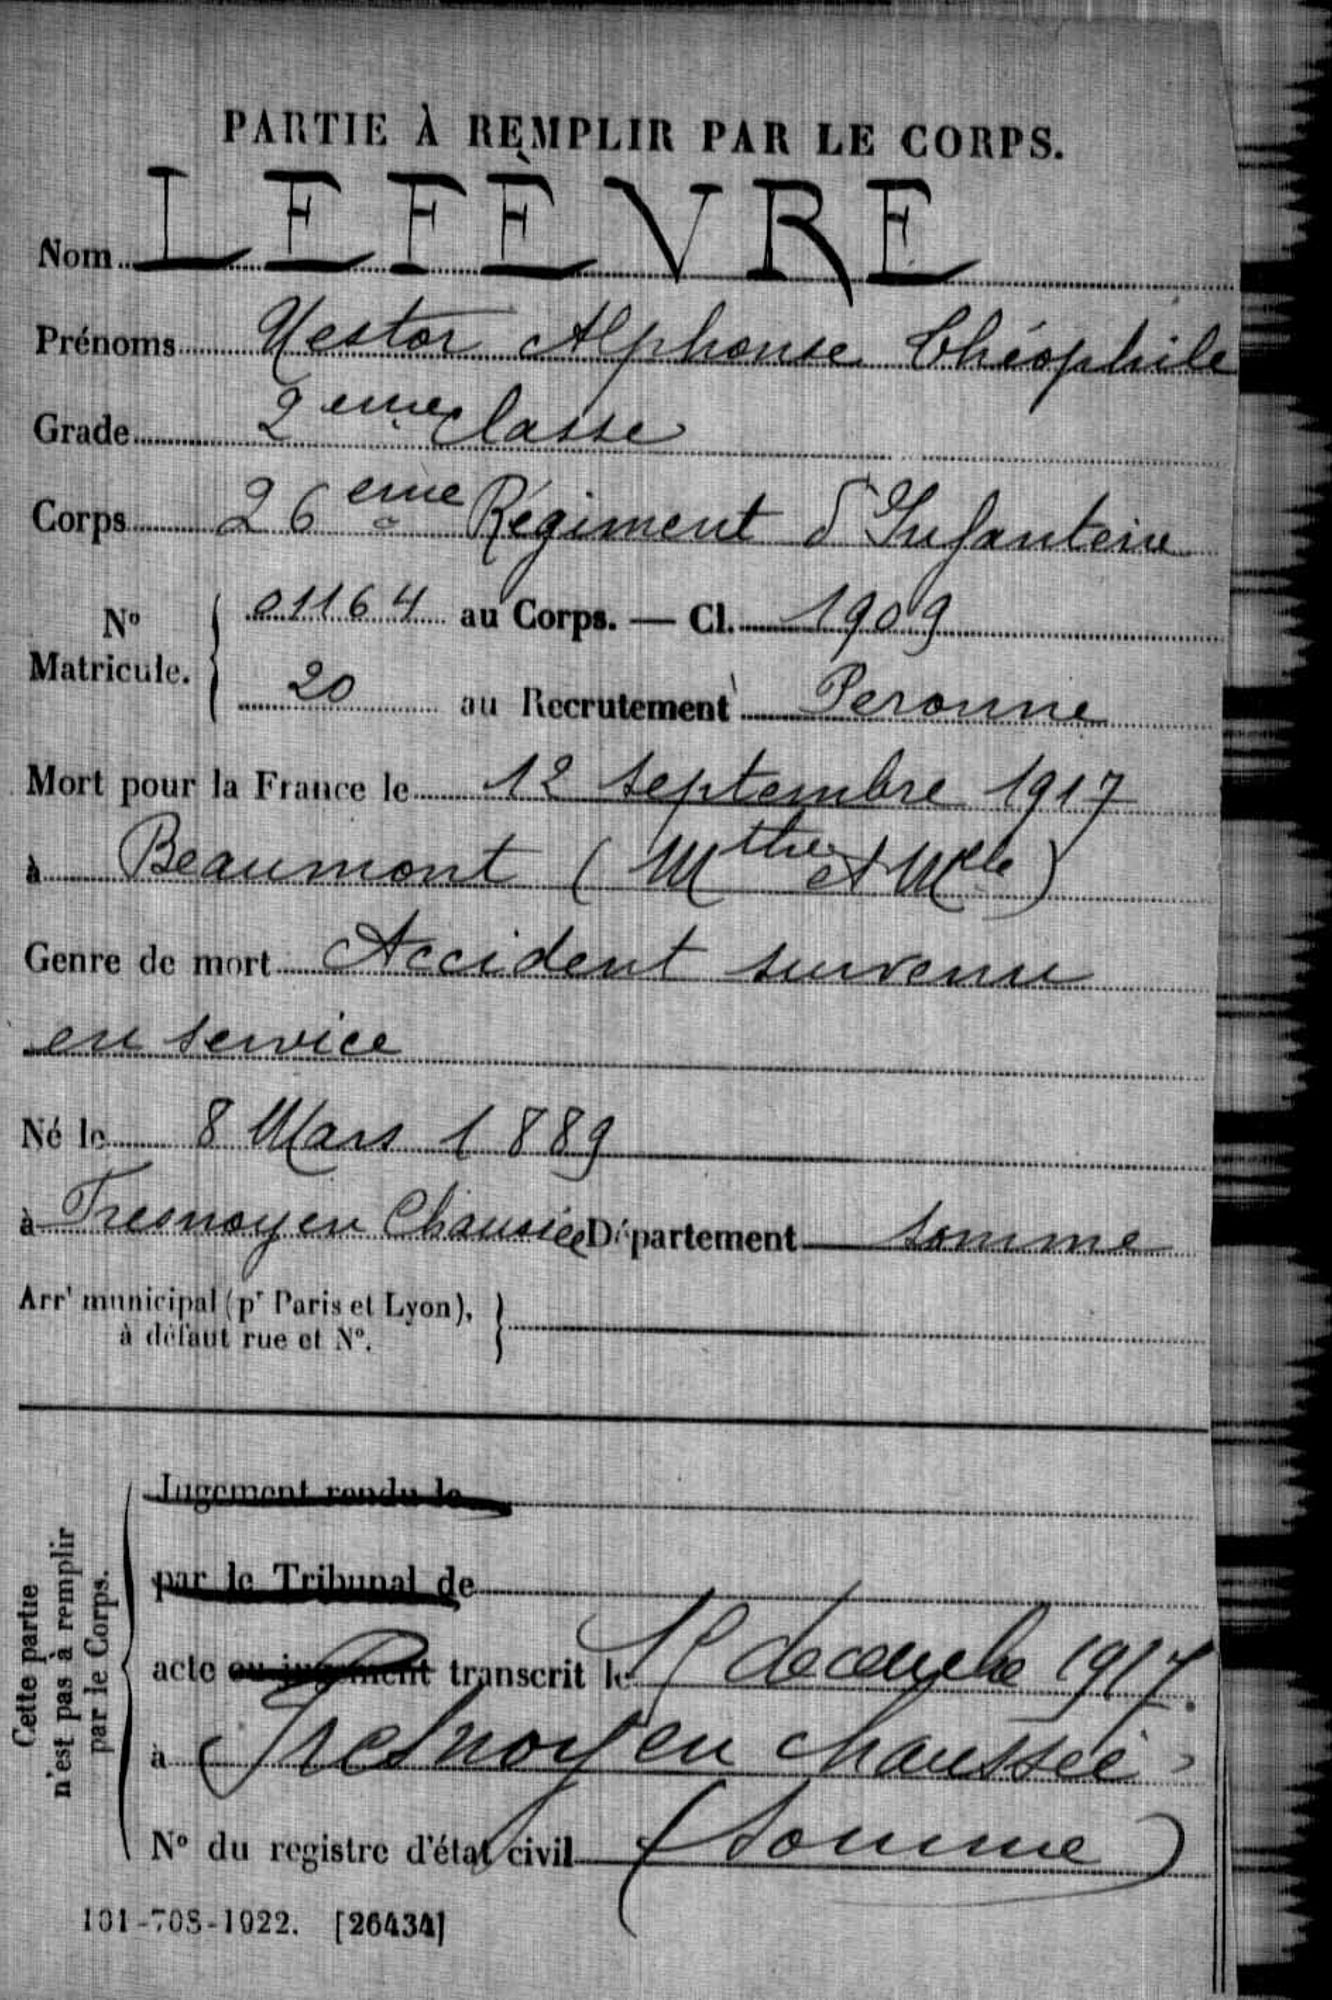 PARTIE À REMPLIR PAR LE CORPS.
Nom LEFÈVRE
Prénoms Nestor Alphonse Théophile
Grade 2eme classe
Corps 26eme Régiment d'Infanterie
No Matricule. 01164 au Corps. — Cl. 1909
20 au Recrutement Peronne
Mort pour la France le 12 septembre 1917
à Beaumont (Mthe et Mlle)
Genre de mort Accident survenu
en service
Né le 8 Mars 1889
à Fresnoy en Chaussée Département Somme
Arrt municipal (pr Paris et Lyon),
à défaut rue et No.
Cette partie
n'est pas à remplir
par le Corps.
Jugement rendu le
par le Tribunal de
acte ou jugement transcrit le decembre 1917.
à Fresnoy en chaussée
No du registre d'état civil (Somme)
101-708-1922. [26434]